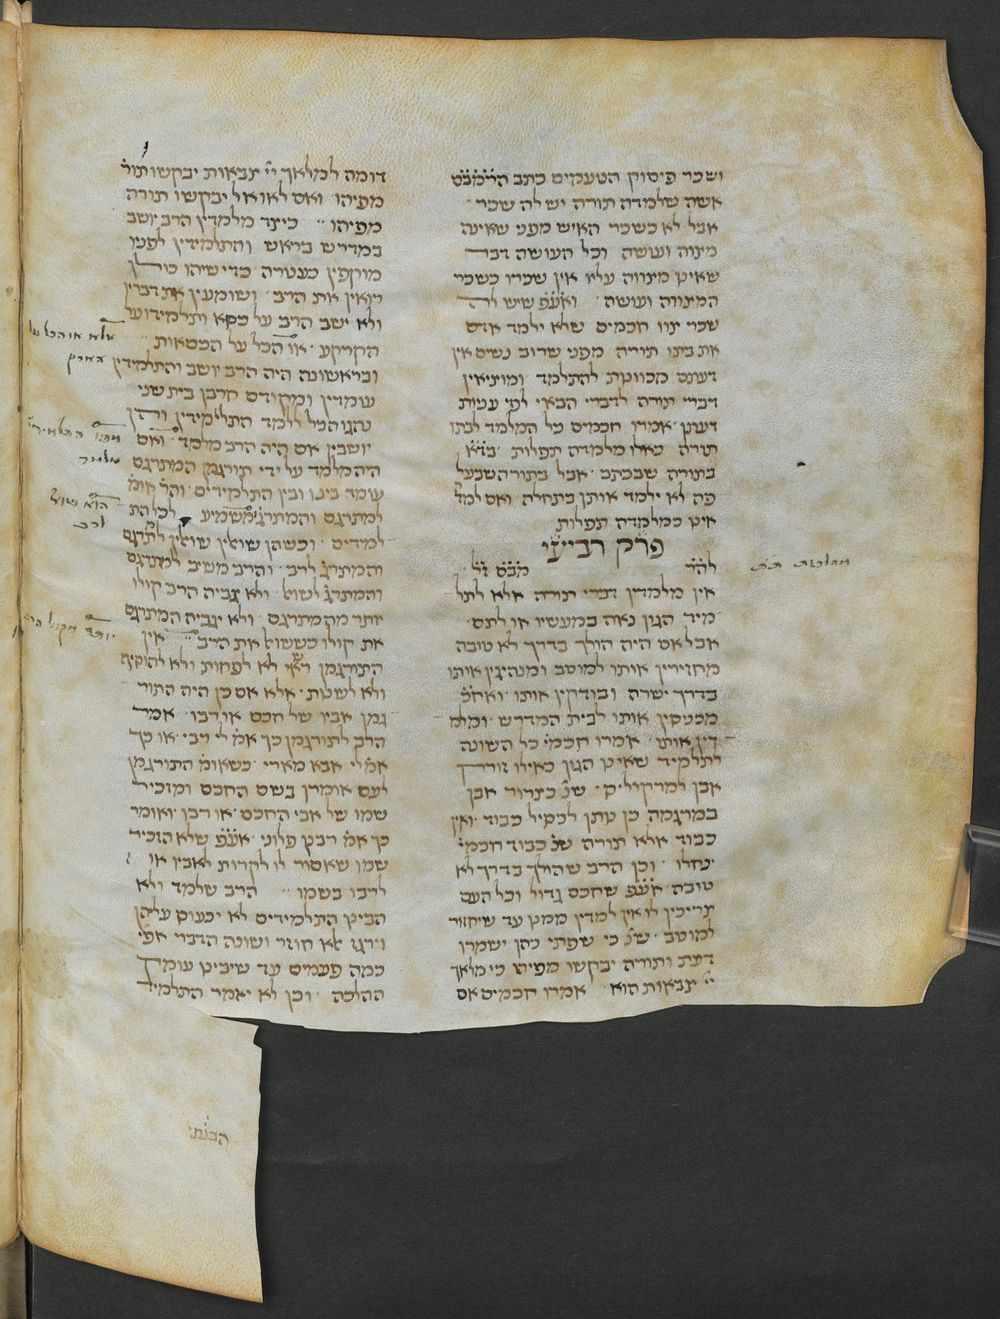 ושכר פיסוק הטעמים כתב הר״מ״ב״ם
אשה שלמדה תורה יש לה שכר
אבל לא כשכר האיש מפני שאינה
מצווה ועושה וכל העושה דבר
שאינו מצווה עליו אין שכרו כשכר
המצווה ועושה ואע״פ שיש לה
שכר צוו חכמים שלא ילמד אדם
את בתו תורה מפני שרוב נשים אין
דעתם מכוונת להתלמד ומוציאין
דברי תורה לדברי הבאי לפי עניות
דעתן אמרו חכמים כל המלמד לבתו
תורה כאלו מלמדה תפלות בד״א
בתורה שבכתב אבל בתורה שבעל
פה לא ילמד אותן בתחלה ואם למד
אינו כמלמדה תפלות
פרק רביעי
אין מלמדין דברי תורה אלא לתל
מיד הגון נאה במעשיו או לתם
אבל אם היה הולך בדרך לא טובה
מחזירין אותו למוטב ומנהיגין אותו
בדרך ישרה ובודקין אותו ואח״כ
מכניסין אותו לבית המדרש ומלמ
דין אותו אמרו חכמי׳ כל השונה
לתלמיד שאינו הגון כאילו זורק
אבן למרקוליס שנ׳ כצרור אבן
במרגמה כן נותן לכסיל כבוד ואין
כבוד אלא תורה שנ׳ כבוד חכמי׳
ינחלו וכן הרב שהולך בדרך לא
טובה אע״פ שחכם גדול וכל העם
צריכין לו אין למדין ממנו עד שיחזור
למוטב שנ׳ כי שפתי כהן ישמרו
דעת ותורה יבקשו מפיהו כי מלאך
יי׳ צבאות הוא אמרו חכמים אם
מהלכות ת״ת
דומה למלאך יי׳ צבאות יבקשו תור׳
מפיהו ואם לאו אל יבקשו תורה
מפיהו כיצד מלמדין הרב יושב
במדרש בראש והתלמידין לפניו
מוקפין כעטרה כדי שיהו כולן
רואין את הרב ושומעין את דבריו
ולא ישב הרב על כסא ותלמידו על
הקרקע או הכל על הכסאות
ובראשונה היה הרב יושב והתלמידין
עומדין ומקודם חרבן בית שני
נהגו הכל ללמד התלמידין והן
יושבין אם היה הרב מלמד ואם
היה מלמד על ידי תורגמן המתרגם
עומד בינו ובין התלמידים והר׳ אומ׳
למתרגם והמתרג׳ משמיע לכל הת
למידים וכשהן שואלין שואלין למתרגם
והמתרג׳ לרב והרב משיב למתרגם
והמתרג׳ לשוא׳ ולא יגביה הרב קולו
יותר מהמתרגם ולא יגביה המתרגם
את קולו כששואל את הרב אין
התורגמן רשאי לא לפחות ולא להוסיף
ולא לשנות אלא אם כן היה התור
גמן אביו של חכם או רבו אמר
הרב לתורגמן כך אמ׳ לי רבי או כך
אמ׳ לי אבא מארי כשאומ׳ התורגמן
לעם אומרן בשם החכם ומזכיר
שמו של אבי החכם או רבן ואומר
כך אמ׳ רבנו פלוני אע״פ שלא הזכיר
שמו שאסור לו לקרות לאביו או
לרבו בשמו הרב שלמד ולא
הבינו התלמידים לא יכעוס עליהן
וירגז אלא חוזר ושונה הדבר אפי׳
כמה פעמים עד שיבינו עומק
ההלכה וכן לא יאמר התלמיד
אלא או הכל על
הארץ